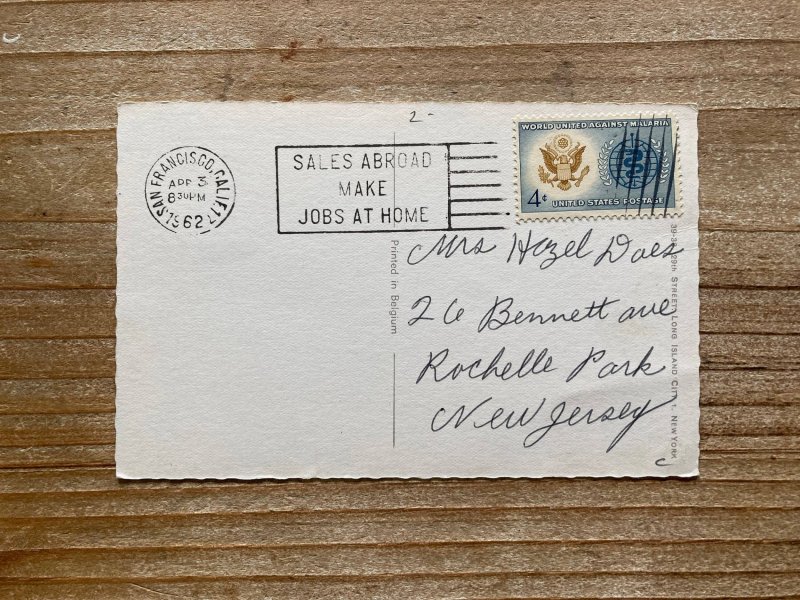 2-
SAN FRANCISCO, CALIF.
APR 3
8 30 PM
1962
SALES ABROAD
MAKE
JOBS AT HOME
WORLD UNITED AGAINST MALARIA
4¢
UNITED STATES POSTAGE
Printed in Belgium
Mrs Hazel Daes
26 Bennett ave
Rochelle Park
New Jersey
29th STREET, LONG ISLAND CITY 1, NEW YORK
c